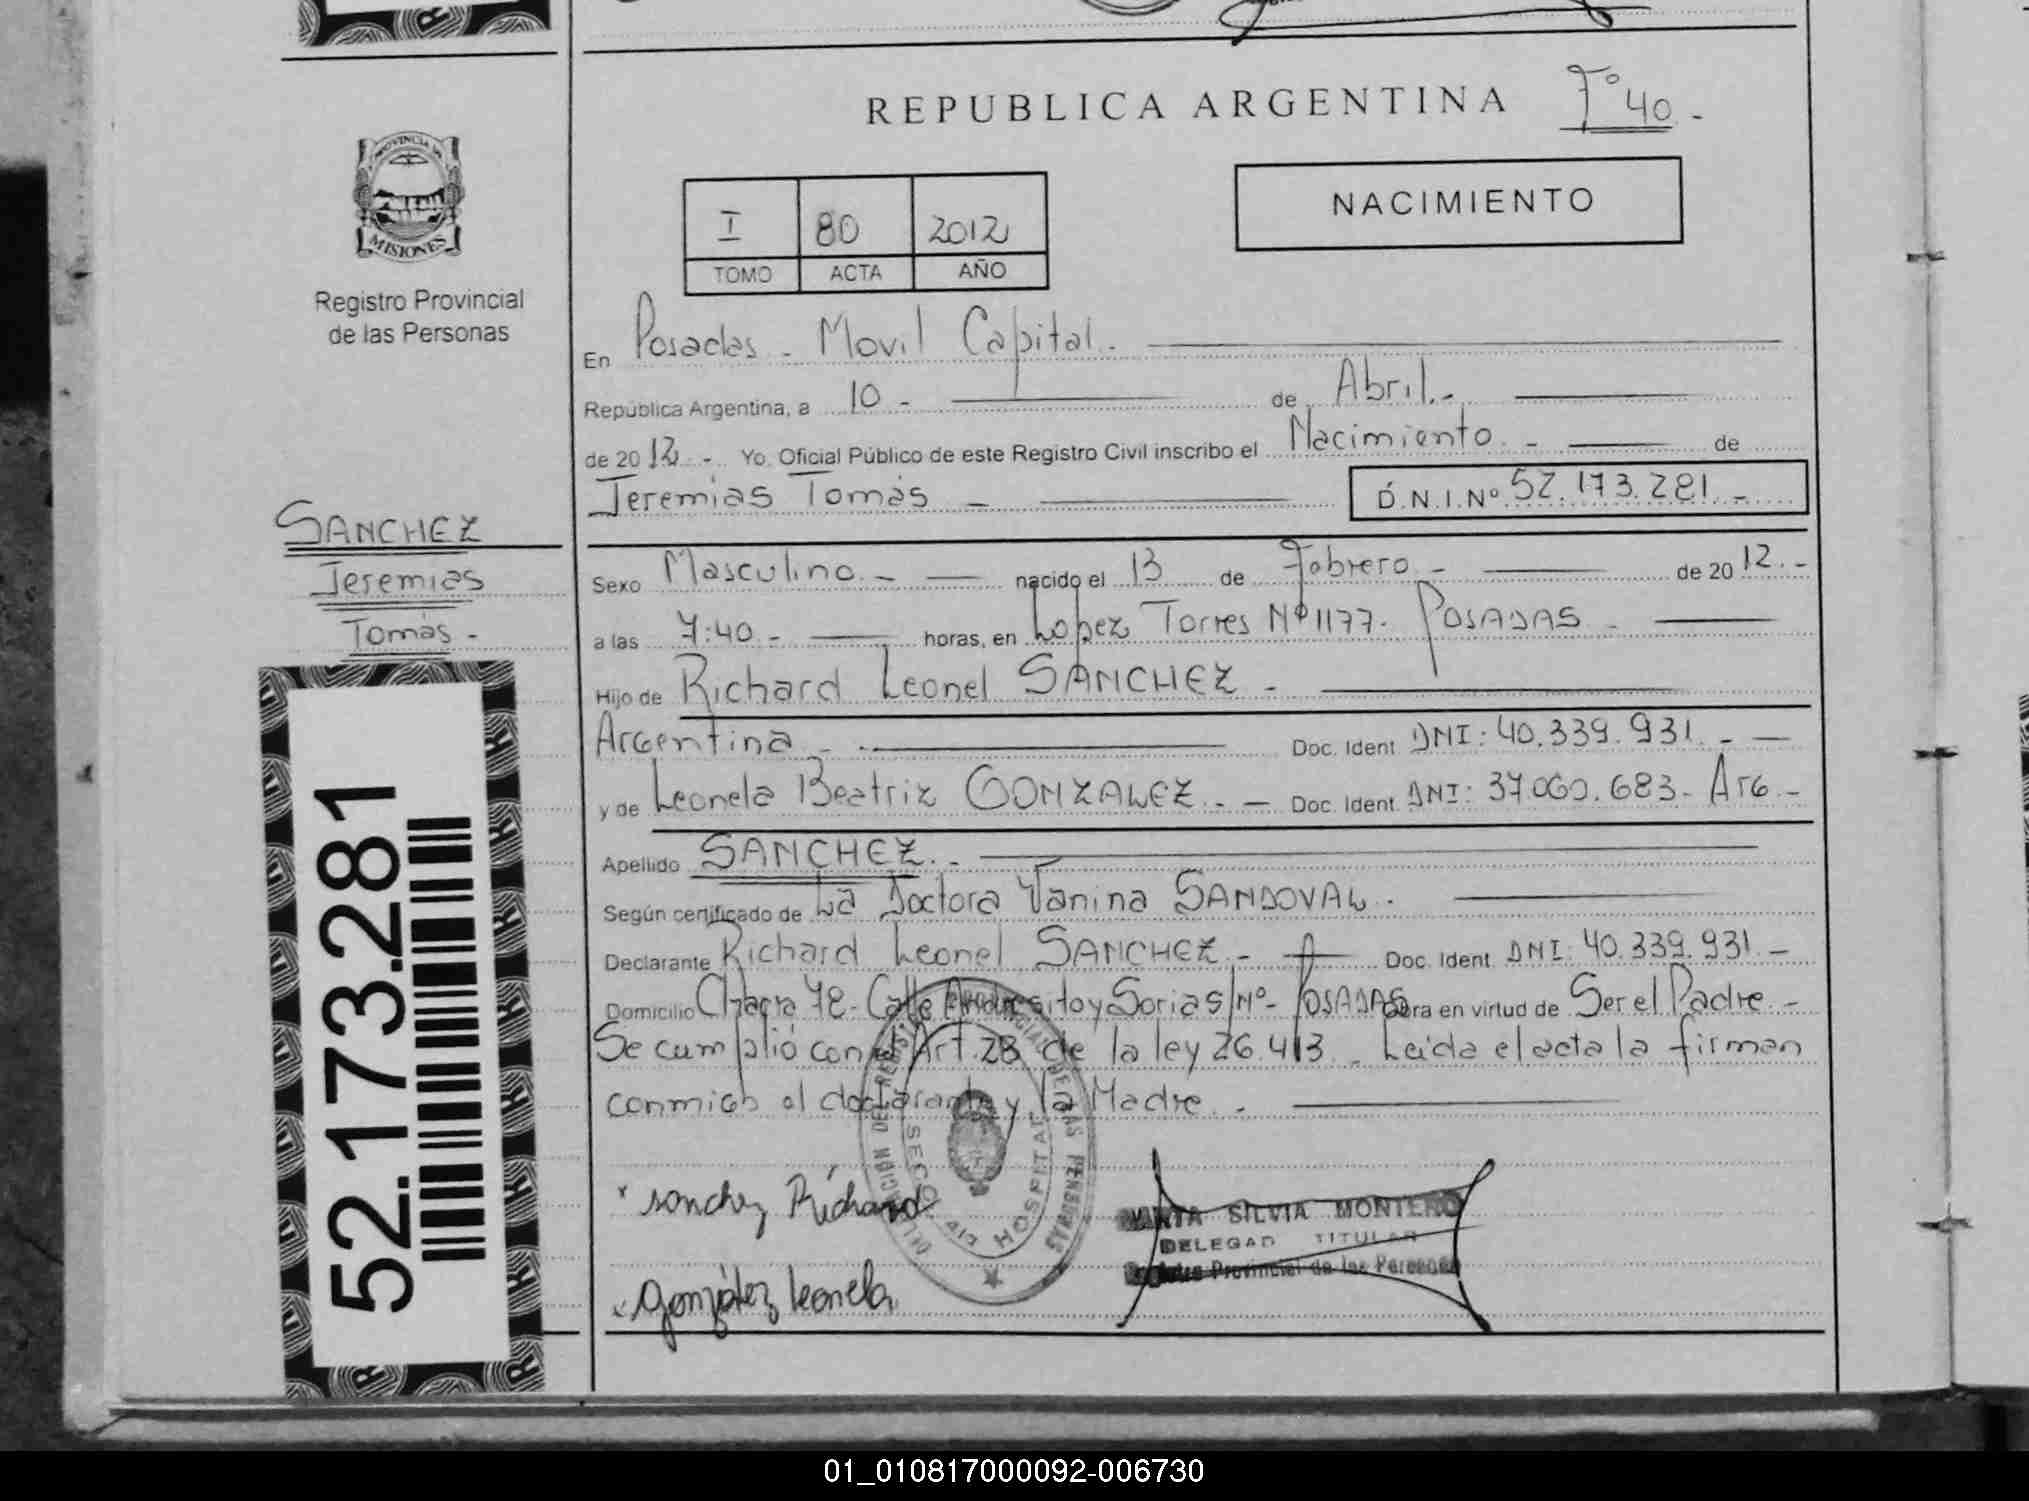 REPUBLICA ARGENTINA Fº 40.-
PROVINCIA DE
MISIONES
Registro Provincial
de las Personas
I 80 2012
TOMO ACTA AÑO
NACIMIENTO
En Posadas - Movil Capital.-
República Argentina, a 10 - de Abril.-
de 2012 - Yo, Oficial Público de este Registro Civil inscribo el Nacimiento.- de
Jeremias Tomás - D.N.I.Nº 52.173.281.-
SANCHEZ
Jeremias
Tomás -
Sexo Masculino.- nacido el 13 de Febrero.- de 2012.-
a las 7:40.- horas, en Lopez Torres Nº 1177. POSADAS.-
Hijo de Richard Leonel SANCHEZ -
Argentina.- Doc. Ident. DNI: 40.339.931.-
y de Leonela Beatriz GONZALEZ.- Doc. Ident. DNI: 37.060.683- Arg.-
Apellido SANCHEZ.-
Según certificado de La Doctora Vanina SANDOVAL.
Declarante Richard Leonel SANCHEZ.- Doc. Ident. DNI: 40.339.931.-
Domicilio Chacra 78- Calle Andresito y Soria S/Nº- POSADAS Obra en virtud de Ser el Padre.-
Se cumplió con el Art. 28 de la ley 26.413.. Leida el acta la firman
conmigo el declarante y la Madre.-
52.173.281
DELEGACION DEL REGISTRO PROVINCIAL DE LAS PERSONAS
SECC. HOSPITAL
sanchez Richard
gonzález leonela
SILVIA MONTERO
DELEGAD TITULAR
Provincial de las Personas
01_010817000092-006730